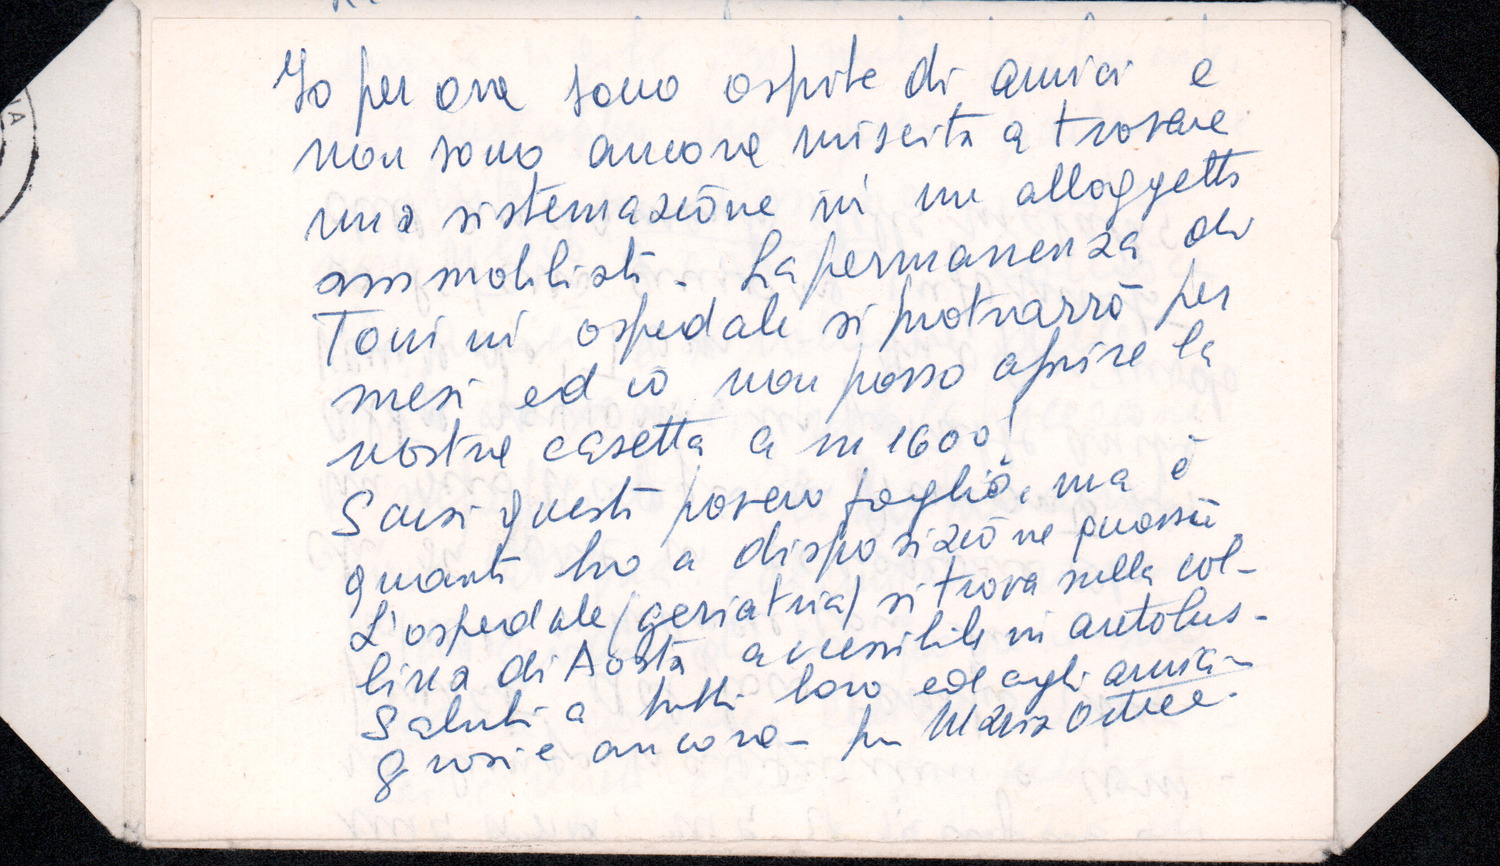 Io per ora sono ospite di amici e
non sono ancora riuscita a trovare
una sistemazione in un alloggetto
ammobiliato. La permanenza di
Toni in ospedale si protrarrà per
mesi ed io non posso aprire la
nostra casetta a m 1600!
Scusi questo povero foglio, ma è
quanto ho a disposizione quassù
L'ospedale (geriatria) si trova sulla col-
lina di Aosta accessibile in autobus -
Saluti a tutti loro ed agli amici -
grazie ancora - Maria
IA